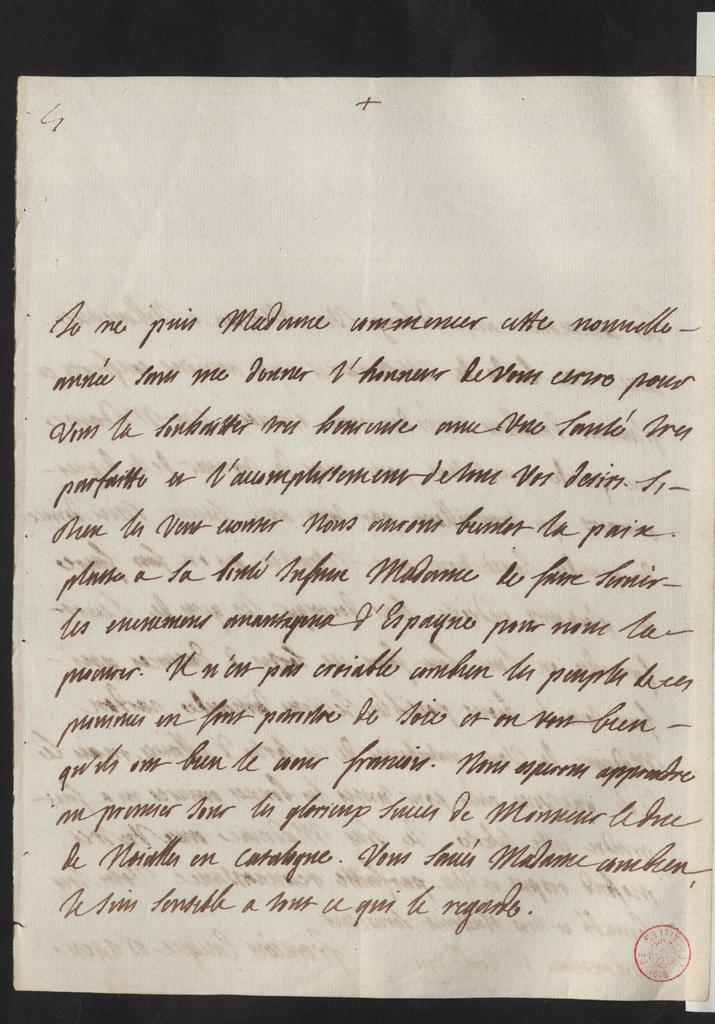 +
Je ne puis Madame commencer cette nouvelle
année sans me donner l'honneur de vous ecrire pour
vous la souhaitter tres heureuse avec une santé tres
parfaitte et l'accomplissement de tous vos desirs. Si
Dieu les veut écouter nous aurons bientot la paix.
plaise a sa bonté infinie Madame de faire servir
les evenemens avantageux d'Espagne pour nous la
procurer. Il n'est pas croiable combien les peuples de ces
provinces en font paroitre de Joie et on voit bien
qu'ils ont bien le cœur francois. Nous esperons apprendre
au premier Jour les glorieux succes de Monsieur le duc
de Noialles en catalogne. Vous savés Madame combien
Je suis sensible a tout ce qui le regarde.